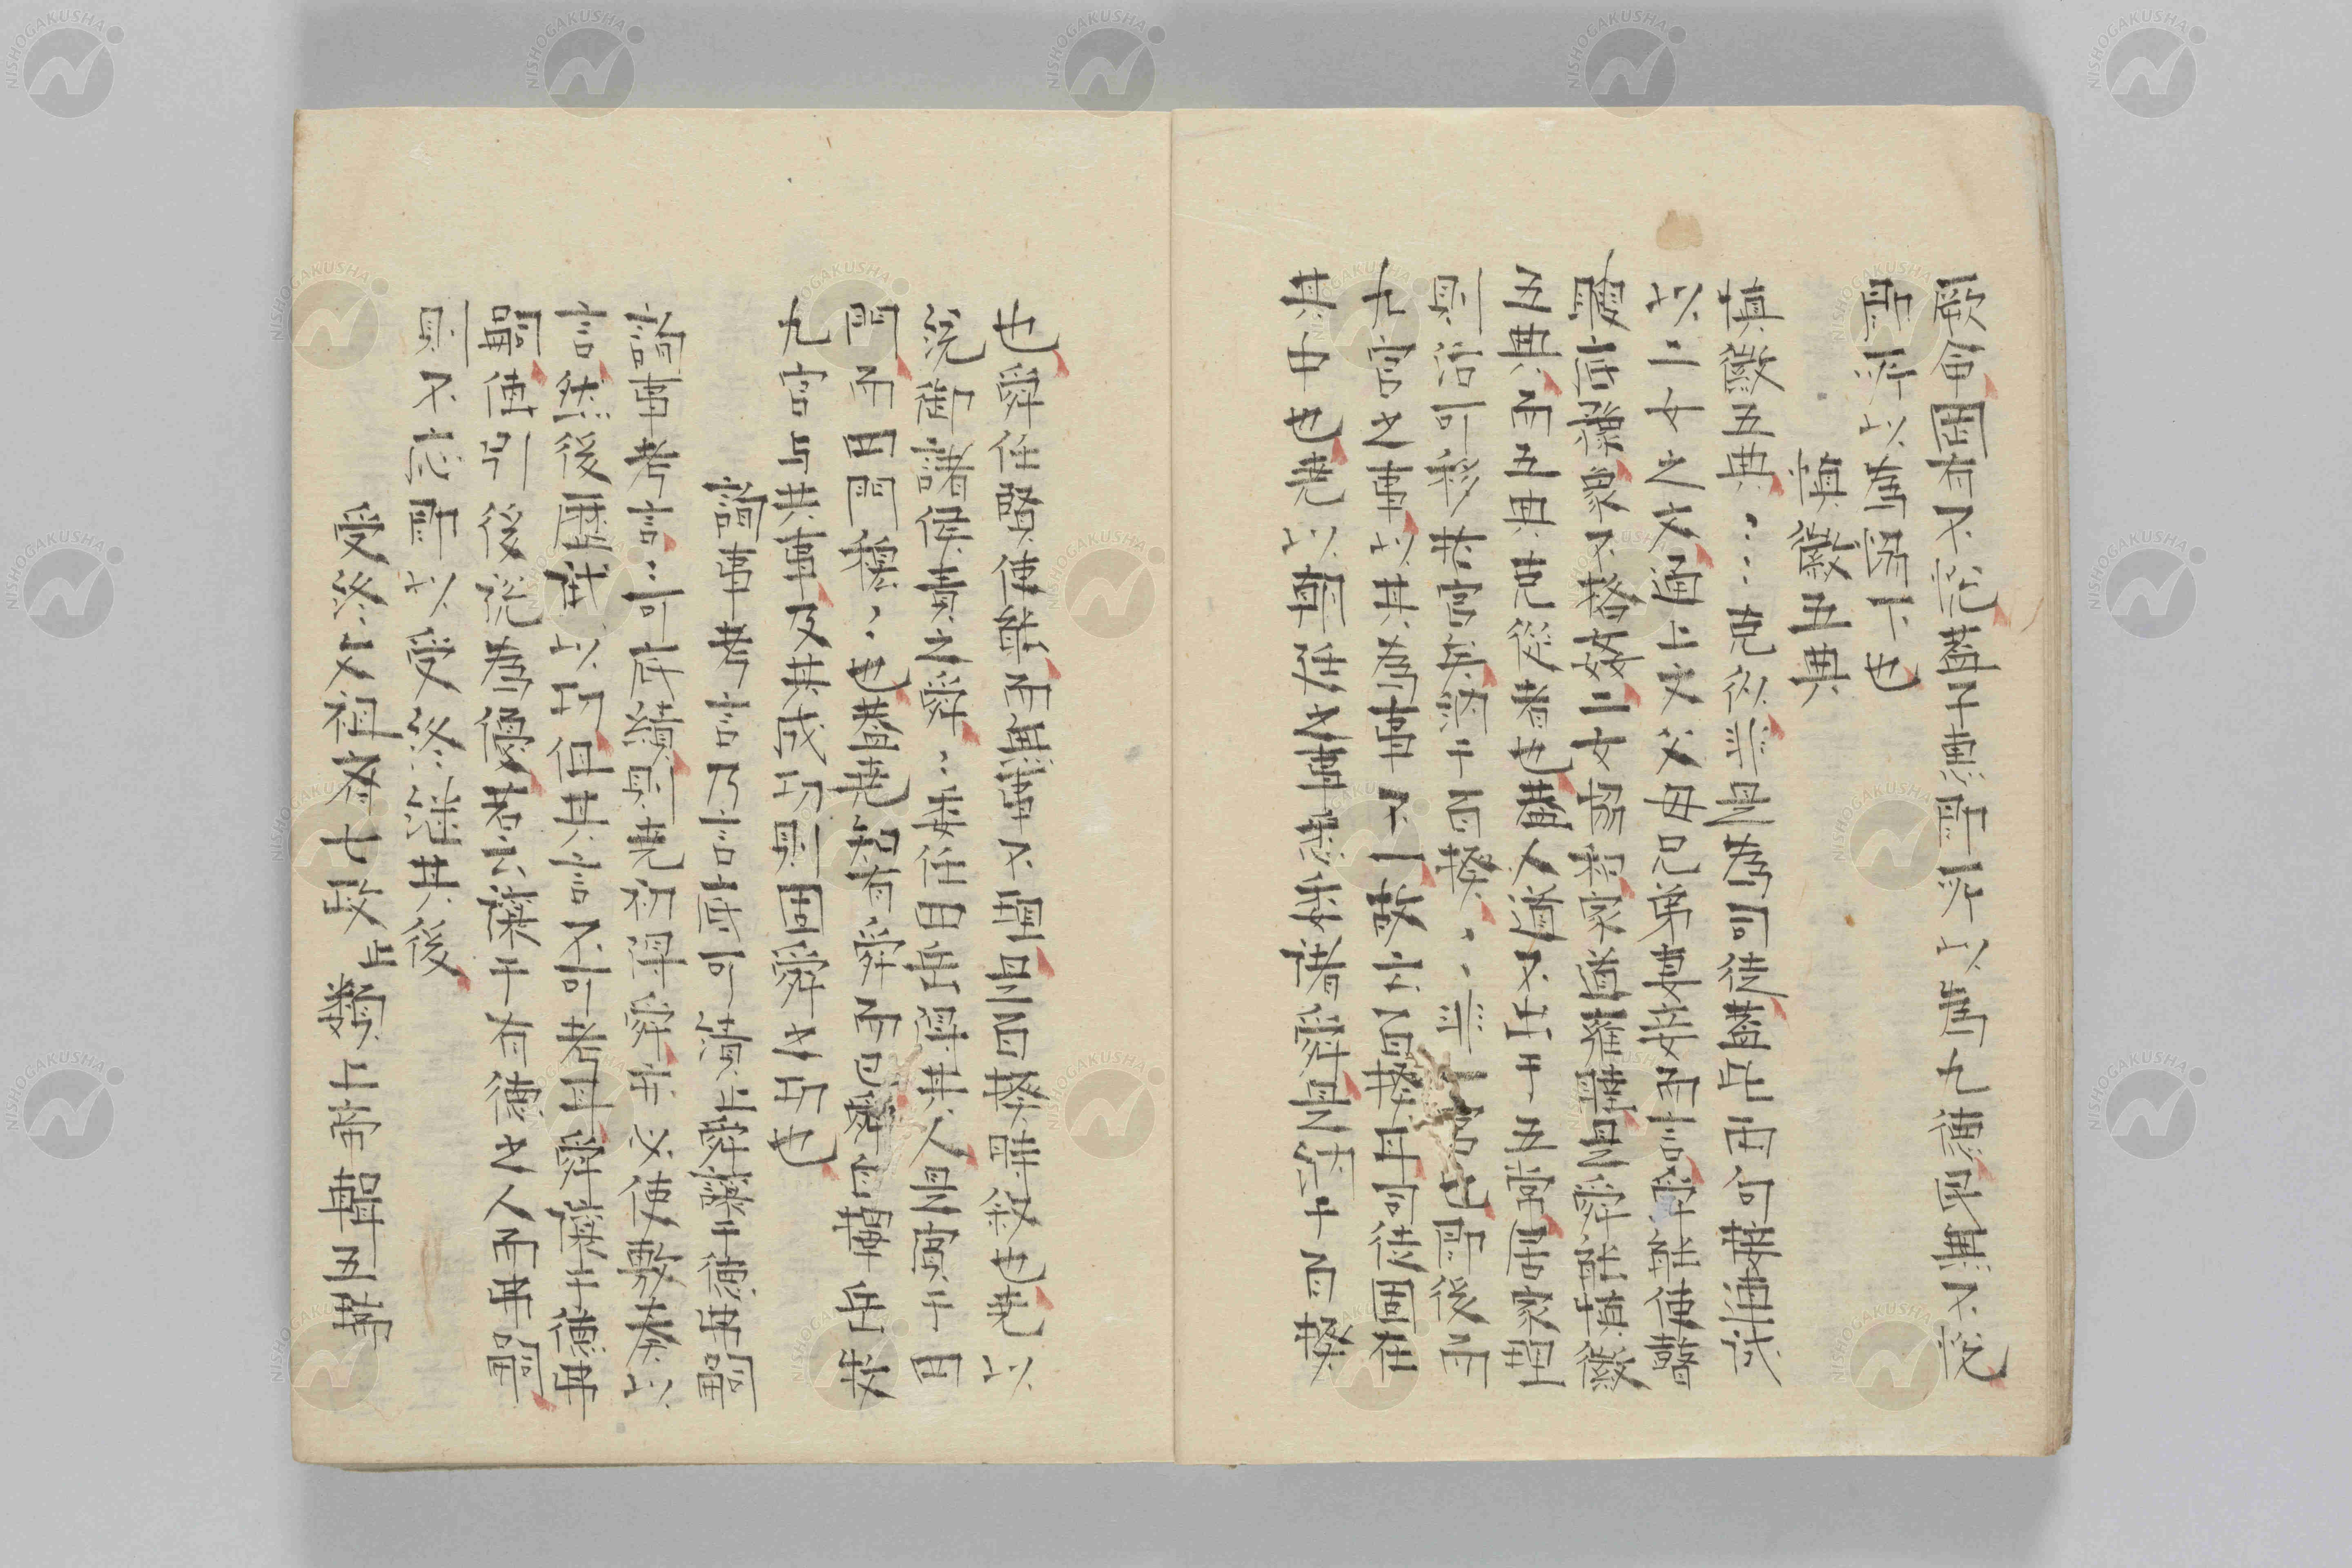 厥命罔有不記蓋子惠即所以為九德民無不悅
即所以為罔下也
慎徽五典
慎徽五典〻〻〻克從非是為司徒蓋岳曰何據連試
以二女之文通上文父母兄弟妻妾而言舜能使瞽
瞍底豫象不格姦二女協和家道雍穆是舜能慎徽
五典而五典克從者也蓋人道不出于五常居家理
則治可移其官矣納于百揆〻〻非一官也即後
九官之事以其為事不一故云百揆耳司徒固在
其中也堯以朝廷之事悉委諸舜是納于百揆
也舜任賢使能而無事不理是百揆時敘也堯以
統御諸侯責之舜〻委任四岳得其人是賓于四
門而四門穆〻也蓋堯知有舜而已舜自擇岳牧
九官与共事及其成功則固舜之功也
詢事考言乃言底可績止舜讓于德弗嗣
詢事考言〻可底績則堯初得舜亦必使敷奏以
言然後歷試以功但其言不可考耳舜讓于德弗
嗣傳引後說為優若云讓于有德之人而弗嗣
則不應即以受終繼其後
受終文祖齊七政止類上帝輯五瑞
NISHOGAKUSHA